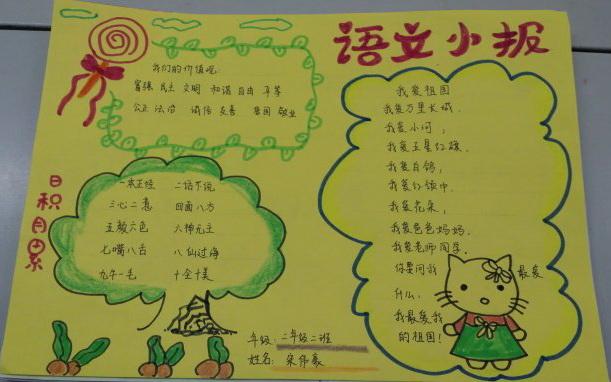 语文小报
我们的价值观:
富强 民主 文明 和谐 自由 平等
公正 法治 诚信 友善 爱国 敬业
日积月累
一本正经 二话不说
三心二意 四面八方
五颜六色 六神无主
七嘴八舌 八仙过海
九牛一毛 十全十美
我爱祖国
我爱万里长城,
我爱小河,
我爱五星红旗,
我爱白鸽,
我爱红领巾,
我爱花朵,
我爱爸爸妈妈,
我爱老师同学,
你要问我 最爱
什么,
我最爱我
的祖国!
年级:二年级二班
姓名: